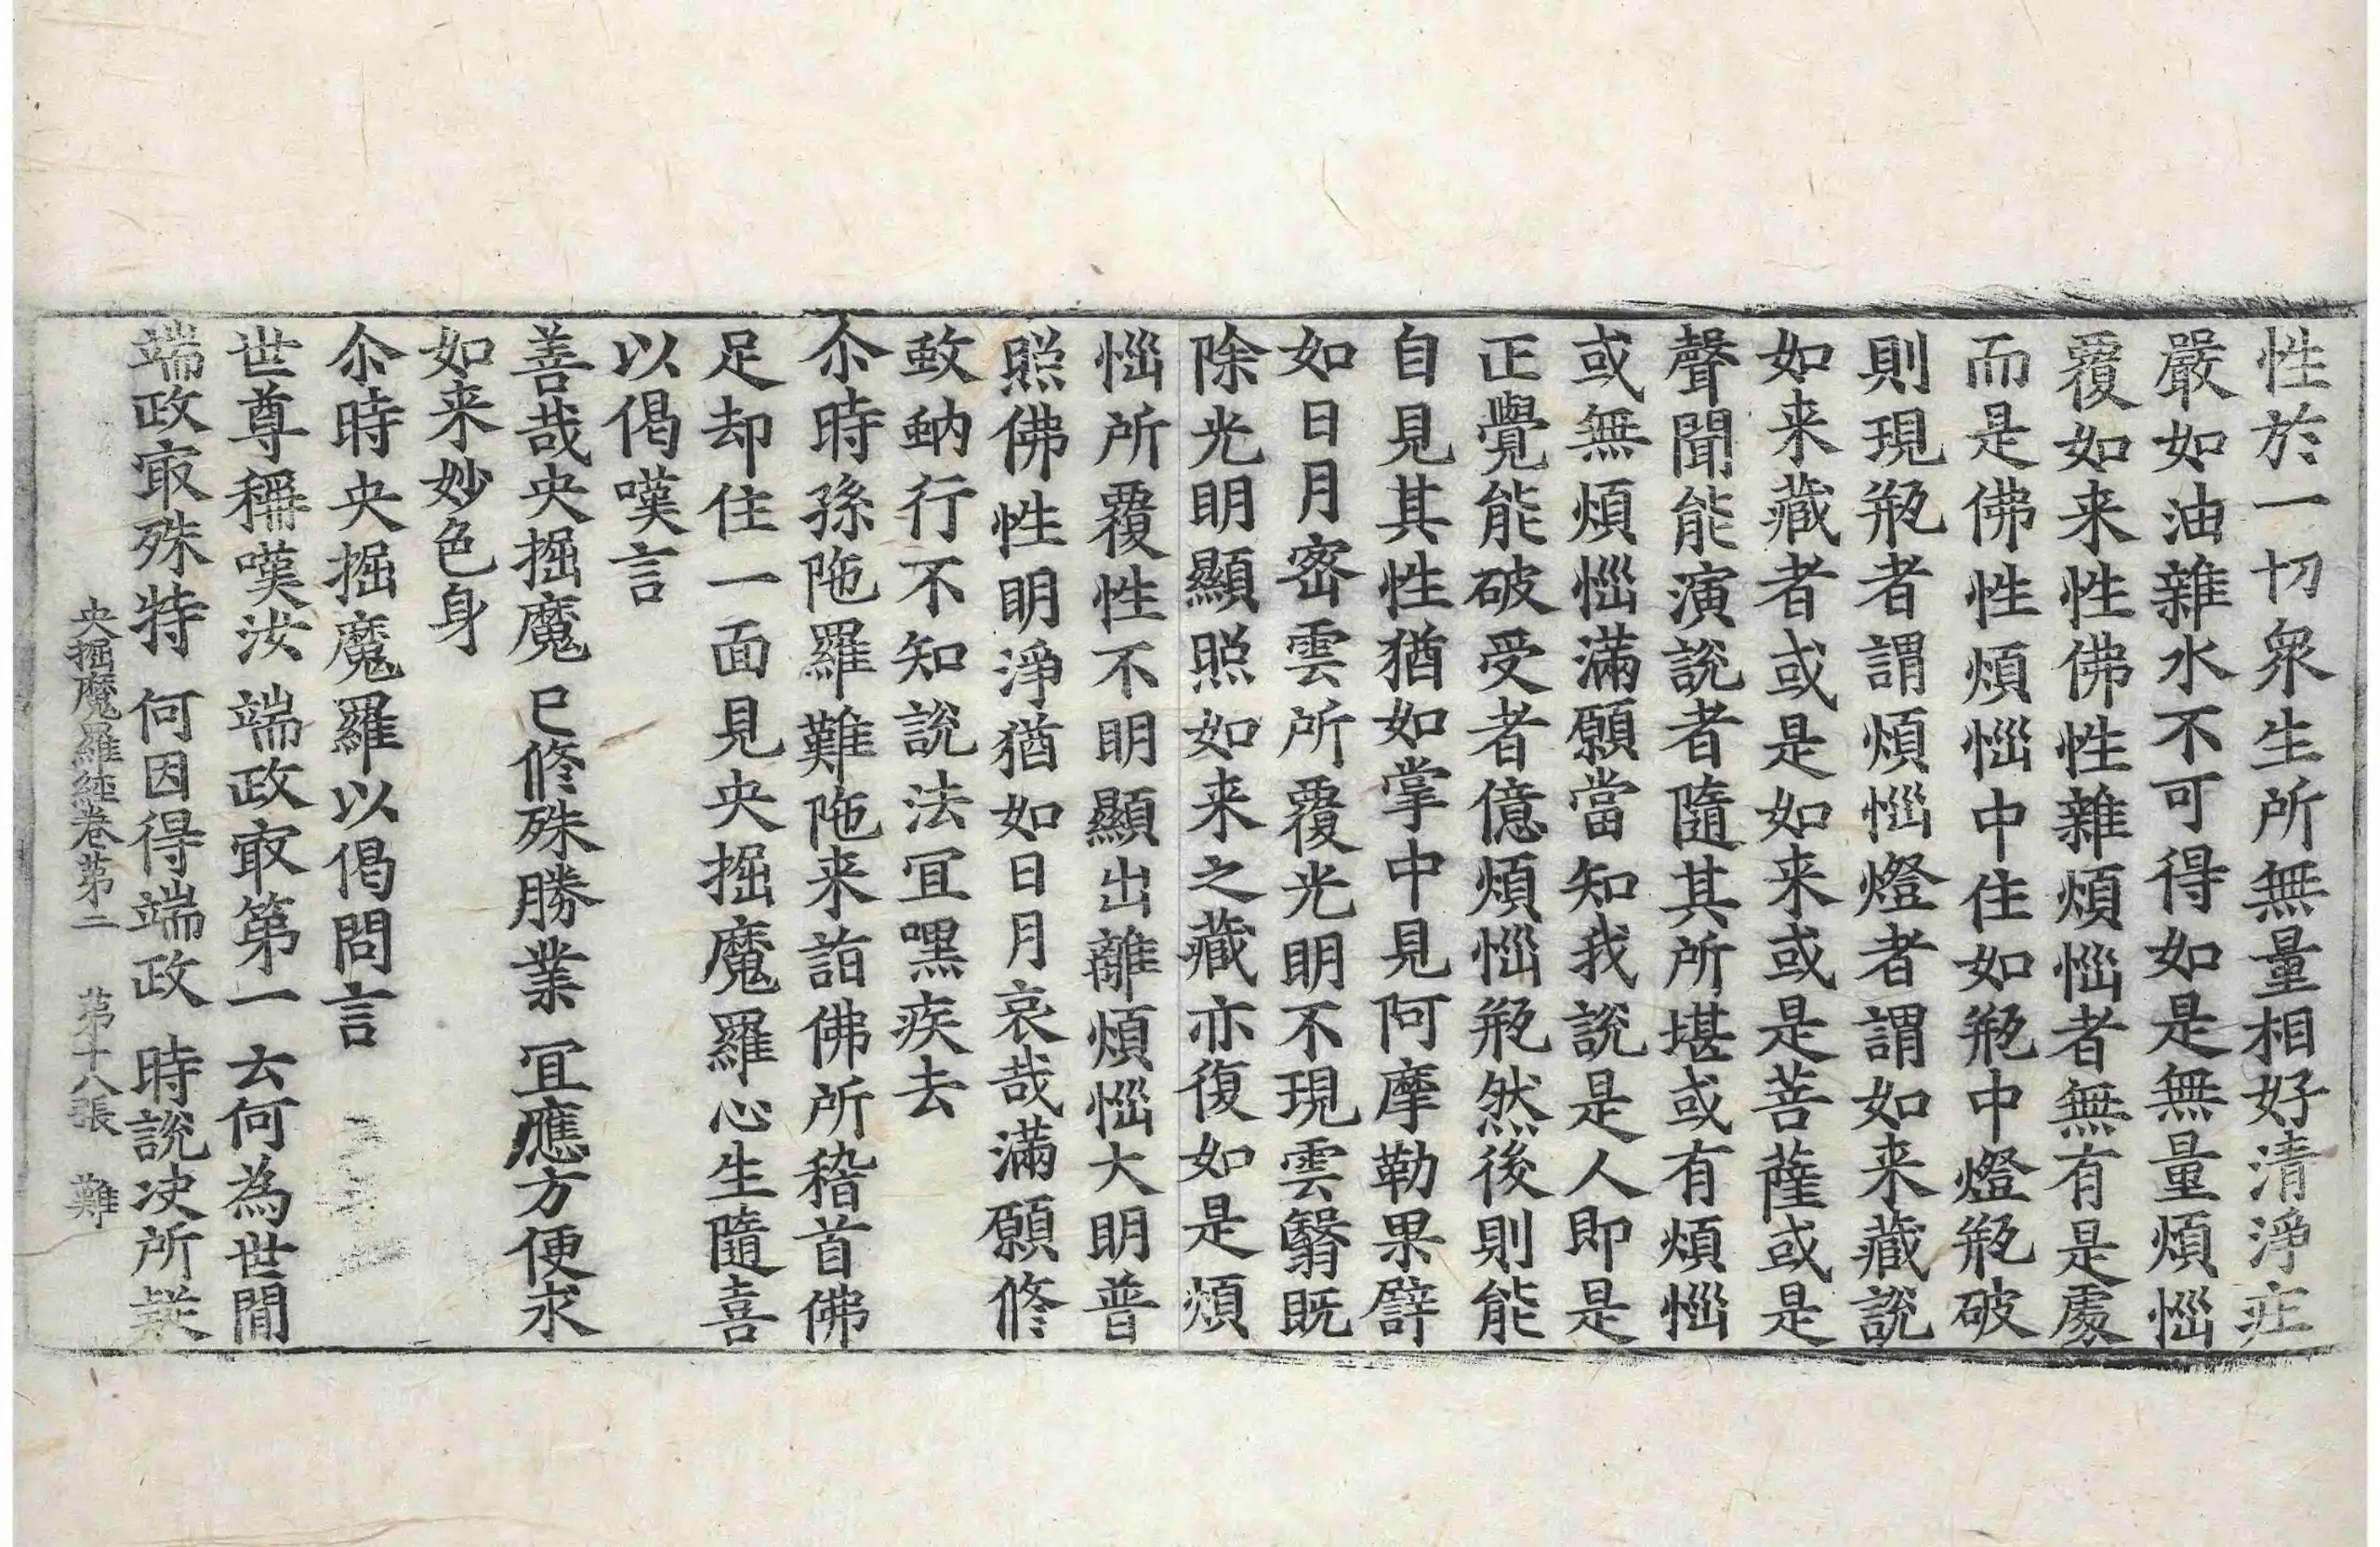 性於一切衆生所無量相好清淨庄
嚴如油雜水不可得如是無量煩惱
覆如来性佛性雜煩惱者無有是處
而是佛性煩惱中住如瓶中燈瓶破
則現瓶者謂煩惱燈者謂如来藏說
如来藏者或是如来或是菩薩或是
聲聞能演說者隨其所堪或有煩惱
或無煩惱滿願當知我說是人即是
正覺能破受者億煩惱瓶然後則能
自見其性猶如掌中見阿摩勒果譬
如日月密雲所覆光明不現雲翳既
除光明顯照如来之藏亦復如是煩
惱所覆性不明顯出離煩惱大明普
照佛性明淨猶如日月哀哉滿願修
蚊蚋行不知說法冝嘿疾去
尒時孫陁羅難陁来詣佛所稽首佛
足却住一面見央掘魔羅心生隨喜
以偈嘆言
善哉央掘魔　已修殊勝業　冝應方便求
如来妙色身
尒時央掘魔羅以偈問言
世尊稱嘆汝　端政㝡第一　云何為世間
端政㝡殊特　何因得端政　時說决所疑
央掘魔羅經卷第二　第十八張　難